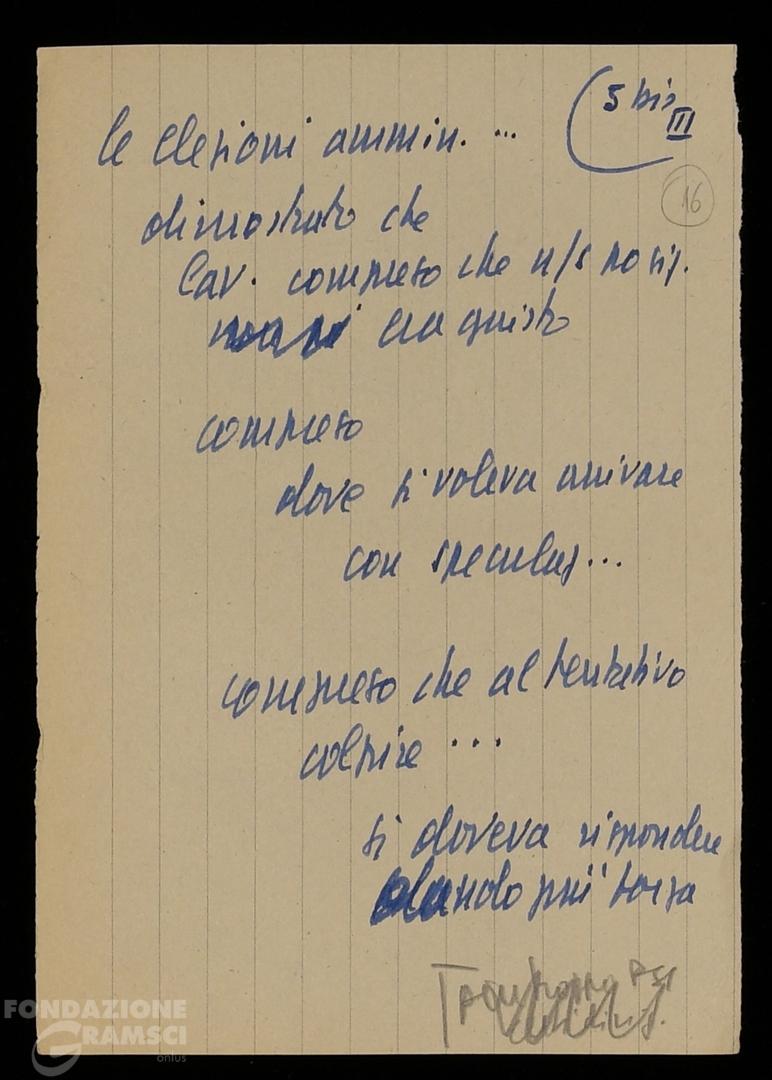 5 bis
III
16
le elezioni ammin. ...
dimostrato che
lav. compreso che n/s posiz.
era giusta
compreso
dove si voleva arrivare
con speculaz...
compreso che al tentativo
colpire ...
si doveva rispondere
dando più forza
FONDAZIONE
GRAMSCI
onlus